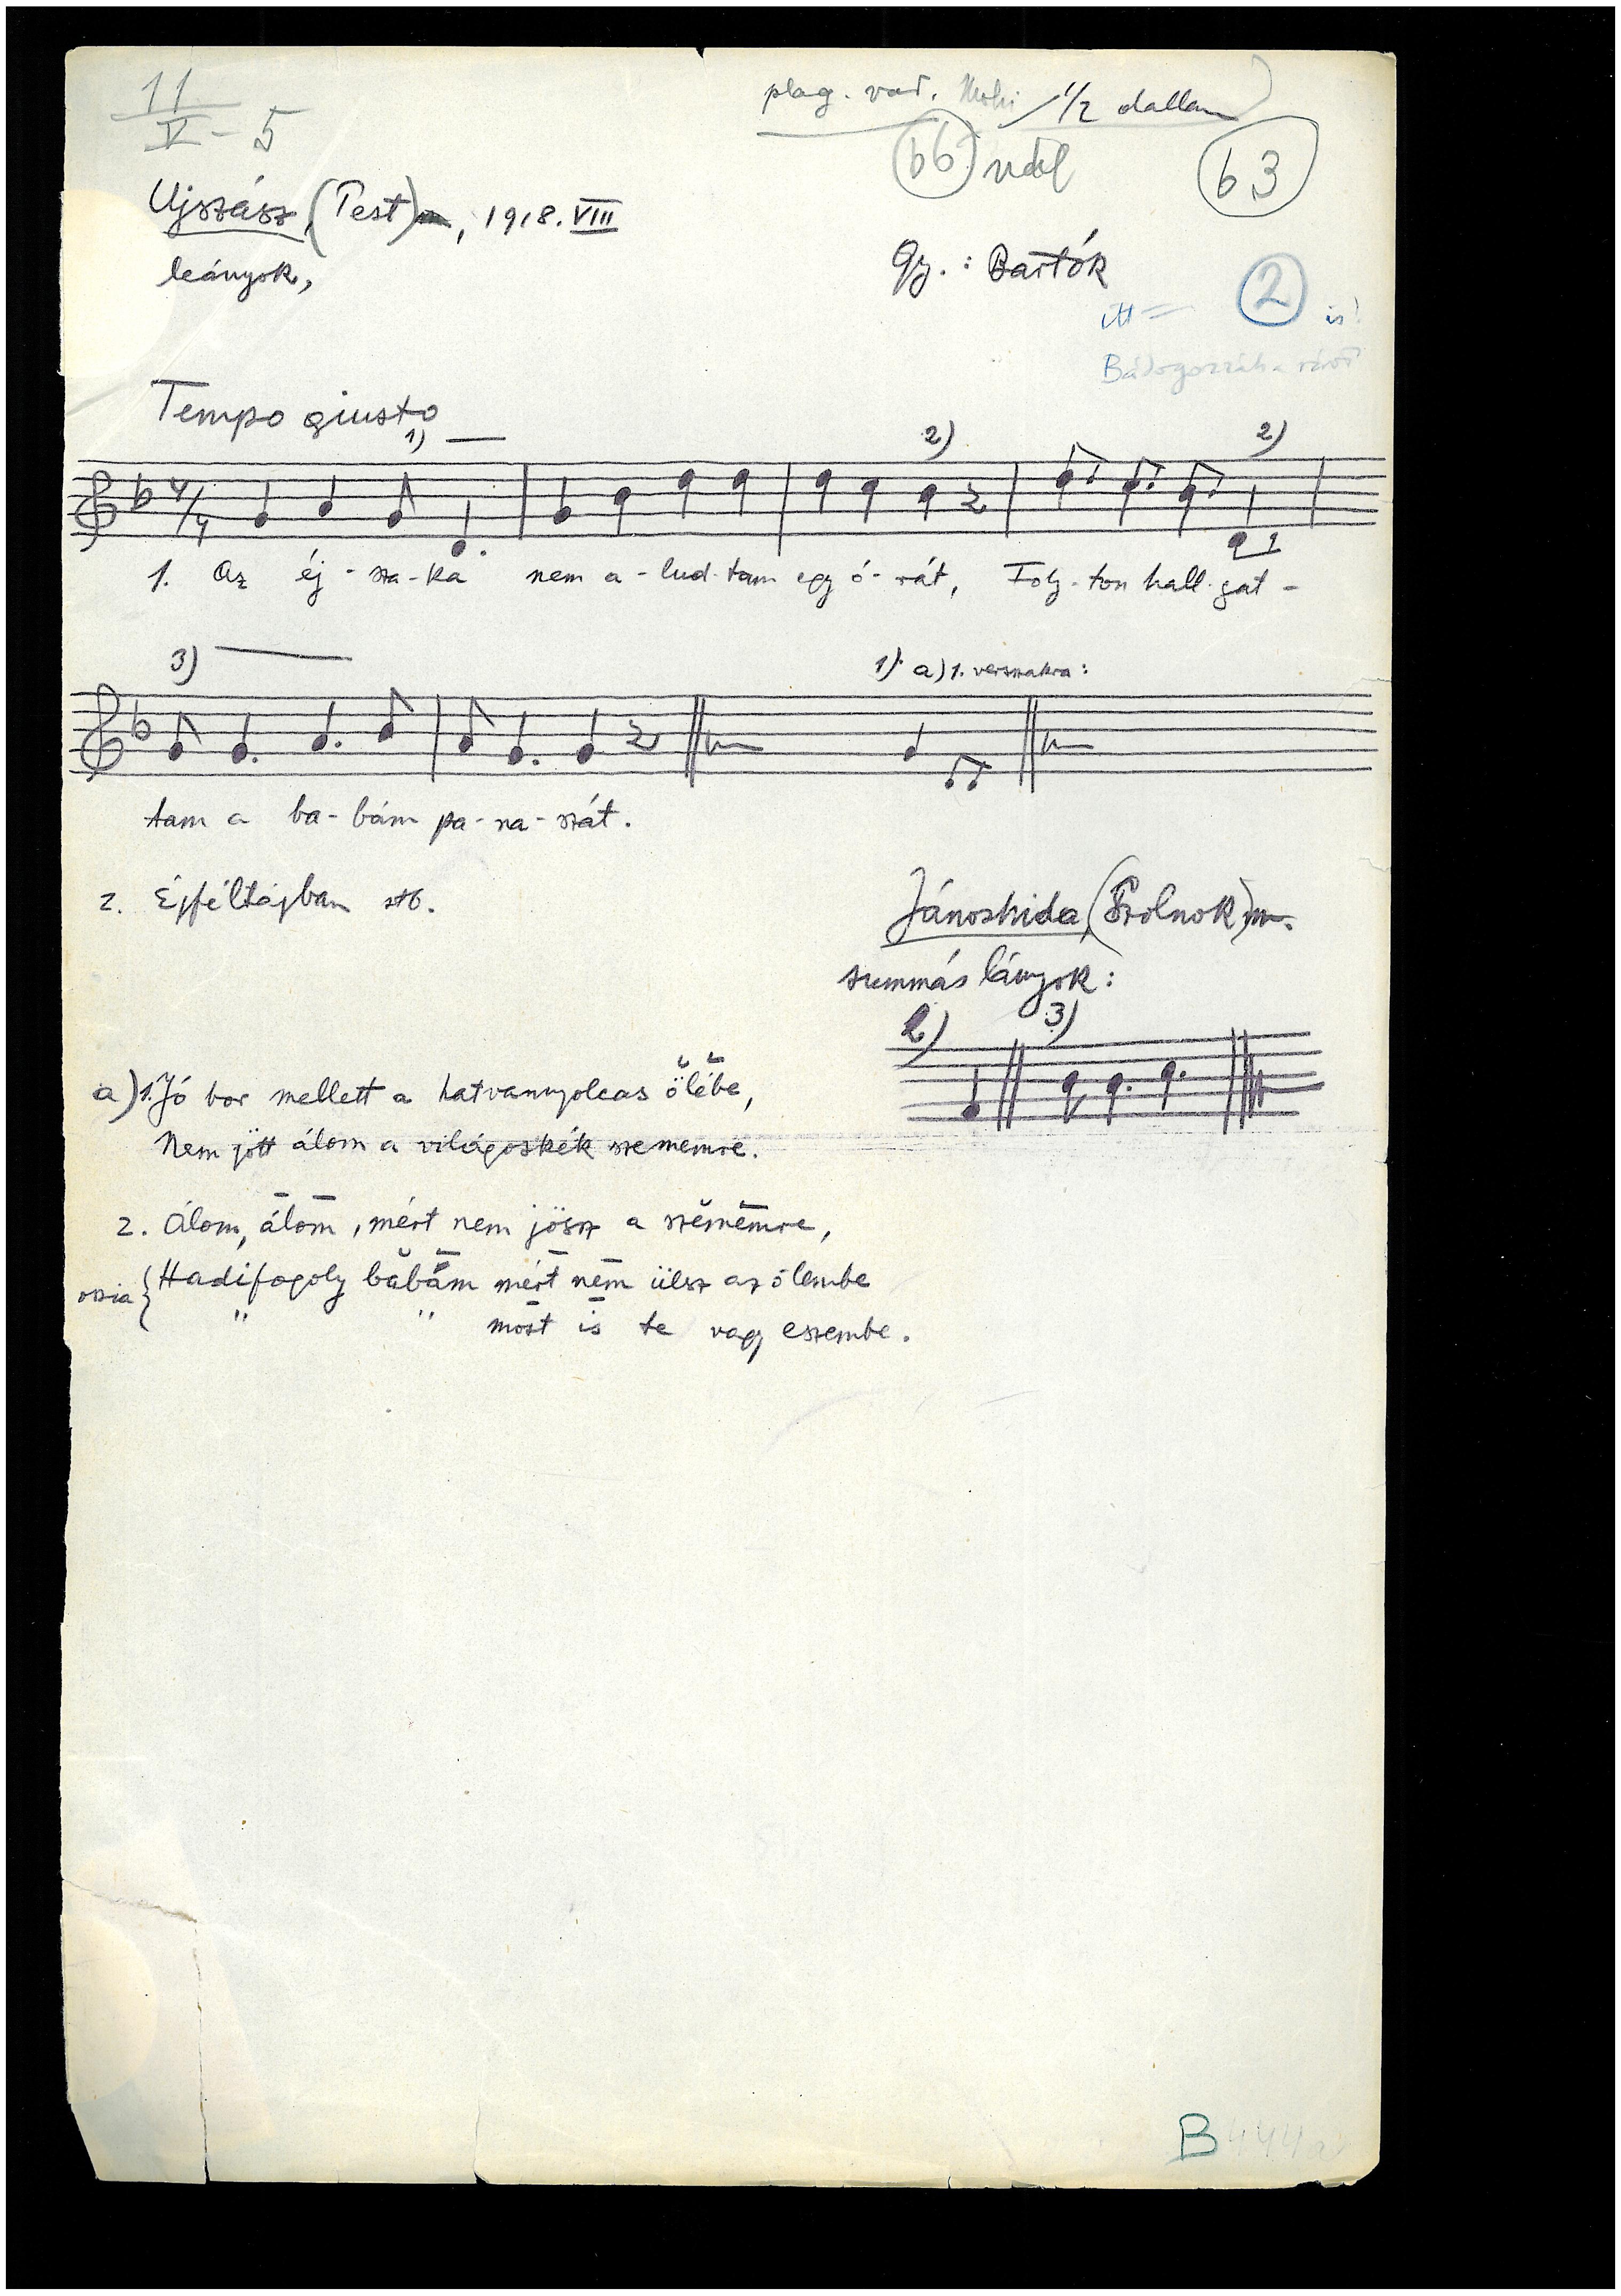 11
V - 5
plag. var. 1/2 dallam
66 nál
63
Ujszász, (Pest), 1918. VIII
leányok,
Gy.: Bartók
itt = 2 is!
Tempo giusto
1) 2) 2)
4/4
1. Az éj - sza - ka nem a - lud - tam egy ó - rát, Foly - ton hall - gat -
3) 1) a) 1. versszakra:
tam a ba - bám pa - na - szát.
2. Éjféltájban stb.
Jánoshida, (Szolnok) m.
summás lányok:
2) 3)
a) 1. Jó bor mellett a hatvannyolcas ölébe,
Nem jött álom a világoskék szememre.
2. Álom, álom, mért nem jösz a szememre,
ossia { Hadifogoly babám mért nem ülsz az ölembe
" " most is te vagy eszembe.
B 444a